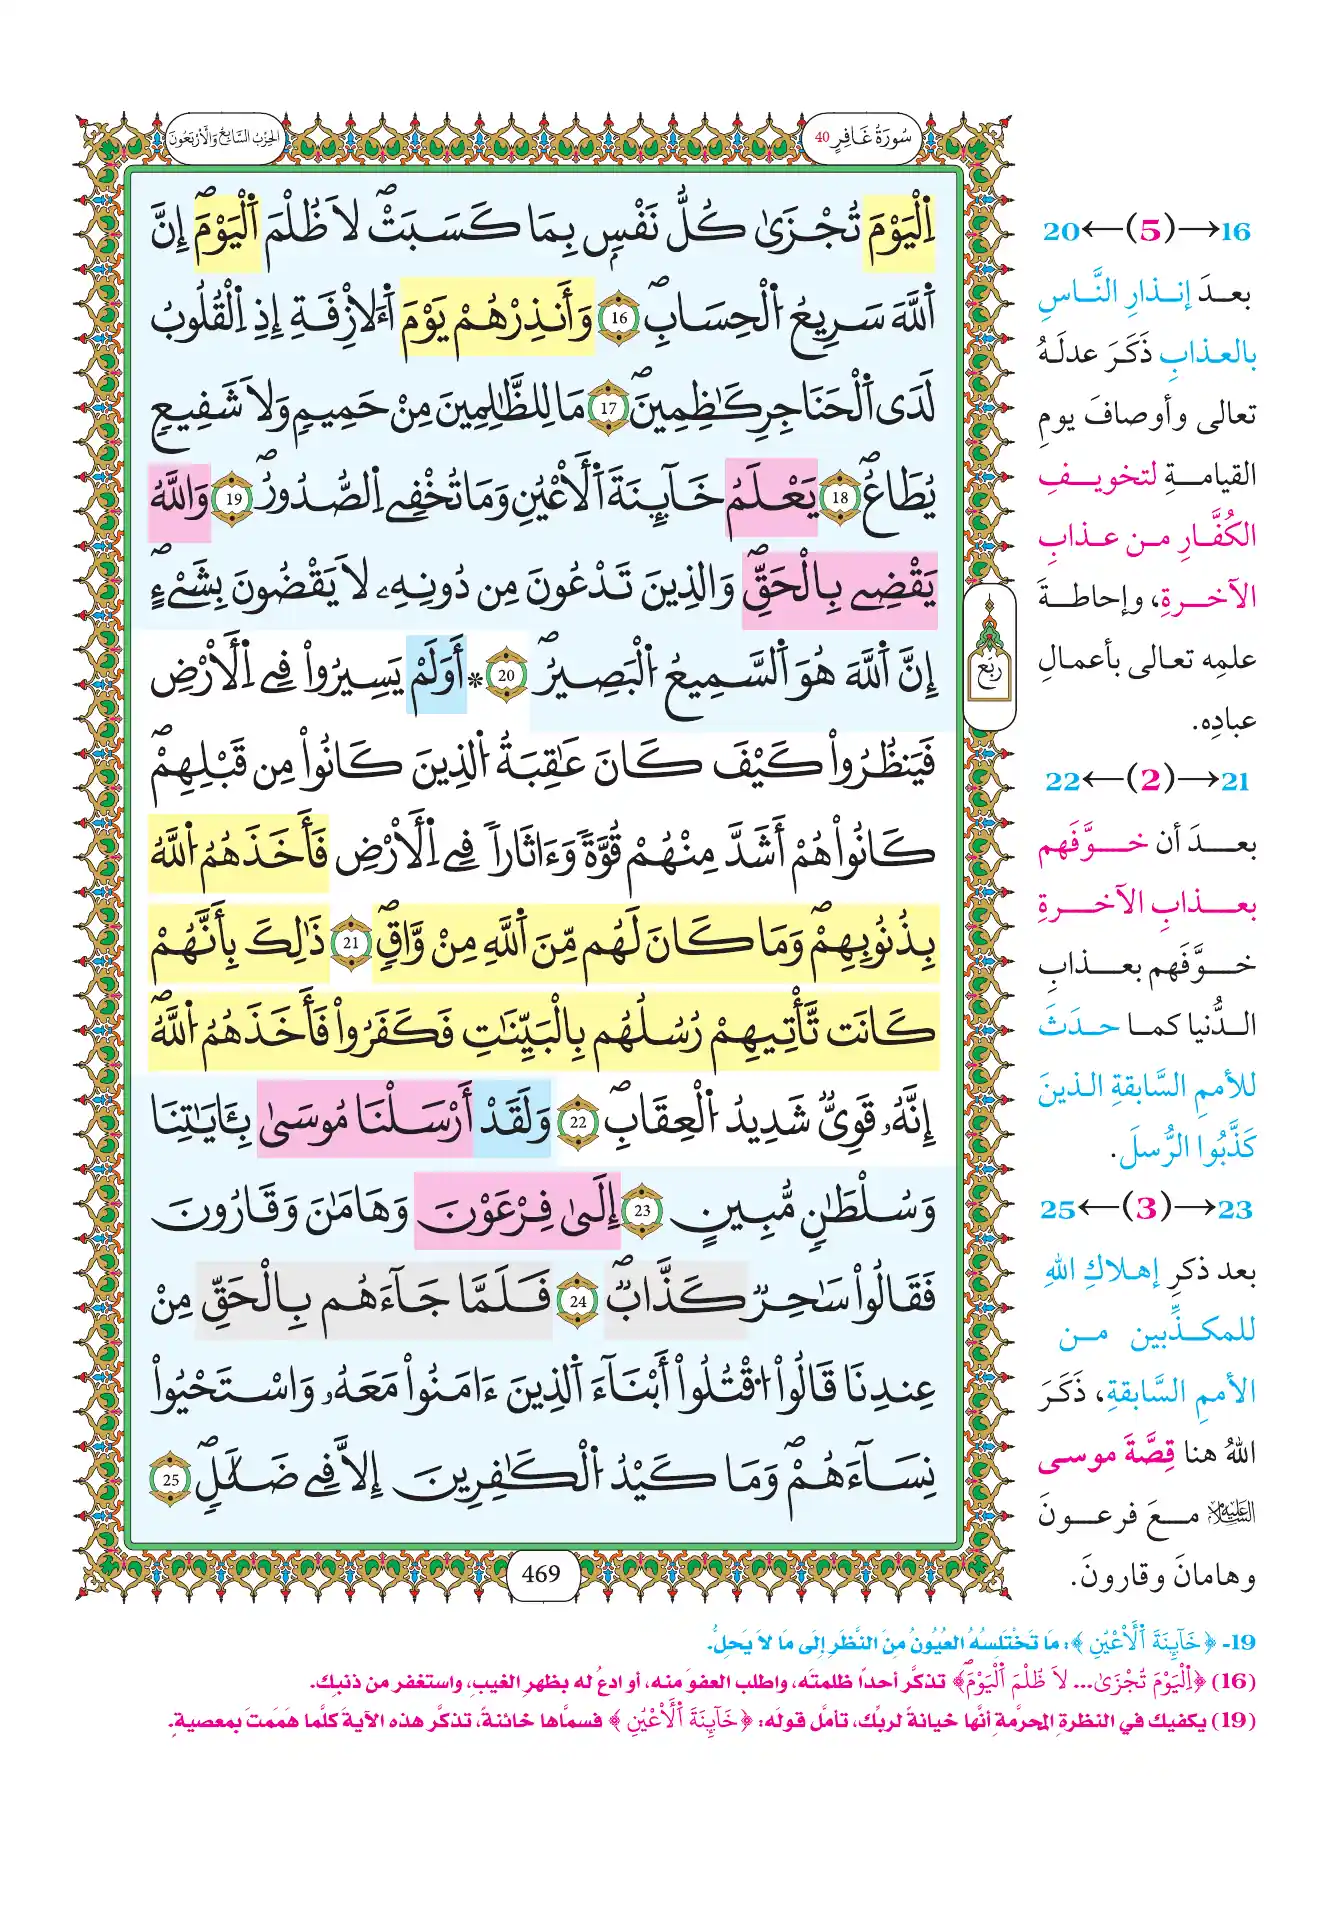 سُورَةُ غَافِرٍ 40
الحِزْبُ السَّابِعُ وَالْأَرْبَعُونَ
اِ۬لْيَوْمَ تُجْزَىٰ كُلُّ نَفْسِۢ بِمَا كَسَبَتْۖ لَا ظُلْمَ اَ۬لْيَوْمَۖ إِنَّ
اَ۬للَّهَ سَرِيعُ اُ۬لْحِسَابِۖ 16 وَأَنذِرْهُمْ يَوْمَ اَ۬لْأٓزِفَةِ إِذِ اِ۬لْقُلُوبُ
لَدَى اَ۬لْحَنَاجِرِ كَٰظِمِينَۖ 17 مَا لِلظَّٰلِمِينَ مِنْ حَمِيمٖ وَلَا شَفِيعٖ
يُطَاعُۖ 18 يَعْلَمُ خَآئِنَةَ اَ۬لْأَعْيُنِ وَمَا تُخْفِے اِ۬لصُّدُورُۖ 19 وَاللَّهُ
يَقْضِے بِالْحَقِّۖ وَالذِينَ تَدْعُونَ مِن دُونِهِۦ لَا يَقْضُونَ بِشَےْءٍۖ
إِنَّ اَ۬للَّهَ هُوَ اَ۬لسَّمِيعُ اُ۬لْبَصِيرُۖ 20 * أَوَلَمْ يَسِيرُواْ فِے اِ۬لْأَرْضِ
فَيَنظُرُواْ كَيْفَ كَانَ عَٰقِبَةُ اُ۬لذِينَ كَانُواْ مِن قَبْلِهِمْۖ
كَانُواْ هُمْ أَشَدَّ مِنْهُمْ قُوَّةٗ وَءَاثَاراٗ فِے اِ۬لْأَرْضِ فَأَخَذَهُمُ اُ۬للَّهُ
بِذُنُوبِهِمْۖ وَمَا كَانَ لَهُم مِّنَ اَ۬للَّهِ مِنْ وَّاقٖۖ 21 ذَٰلِكَ بِأَنَّهُمْ
كَانَت تَّأْتِيهِمْ رُسُلُهُم بِالْبَيِّنَٰتِ فَكَفَرُواْ فَأَخَذَهُمُ اُ۬للَّهُۖ
إِنَّهُۥ قَوِيّٞ شَدِيدُ اُ۬لْعِقَابِۖ 22 وَلَقَدْ أَرْسَلْنَا مُوسَىٰ بِـَٔايَٰتِنَا
وَسُلْطَٰنٖ مُّبِينٍ 23 إِلَىٰ فِرْعَوْنَ وَهَامَٰنَ وَقَارُونَ
فَقَالُواْ سَٰحِرٞ كَذَّابٞۖ 24 فَلَمَّا جَآءَهُم بِالْحَقِّ مِنْ
عِندِنَا قَالُواْ اُ۟قْتُلُواْ أَبْنَآءَ اَ۬لذِينَ ءَامَنُواْ مَعَهُۥ وَاسْتَحْيُواْ
نِسَآءَهُمْۖ وَمَا كَيْدُ اُ۬لْكَٰفِرِينَ إِلَّا فِے ضَلَٰلٖۖ 25
رُبُع
469
20←(5)→16
بعدَ إنذارِ النَّاسِ
بالعذابِ ذَكَرَ عدلَهُ
تعالى وأوصافَ يومِ
القيامةِ لتخويفِ
الكُفَّارِ من عذابِ
الآخرةِ، وإحاطةَ
علمِه تعالى بأعمالِ
عبادِه.
22←(2)→21
بعدَ أن خوَّفَهم
بعذابِ الآخرةِ
خوَّفَهم بعذابِ
الدُّنيا كما حدَثَ
للأممِ السَّابقةِ الذينَ
كَذَّبُوا الرُّسلَ.
25←(3)→23
بعد ذكرِ إهلاكِ اللهِ
للمكذِّبين من
الأممِ السَّابقةِ، ذَكَرَ
اللهُ هنا قِصَّةَ موسى
عليه السلام معَ فرعونَ
وهامانَ وقارونَ.
19- ﴿خَآئِنَةَ اَ۬لْأَعْيُنِ﴾: مَا تَخْتَلِسُهُ العُيُونُ مِنَ النَّظَرِ إِلَى مَا لاَ يَحِلُّ.
(16) ﴿اِ۬لْيَوْمَ تُجْزَىٰ... لَا ظُلْمَ اَ۬لْيَوْمَۖ﴾ تذكَّر أحدًا ظلمتَه، واطلب العفوَ منه، أو ادعُ له بظهرِ الغيبِ، واستغفر من ذنبِك.
(19) يكفيك في النظرةِ المحرَّمةِ أنَّها خيانةٌ لربِّك، تأمَّل قولَه: ﴿خَآئِنَةَ اَ۬لْأَعْيُنِ﴾ فسمَّاها خائنةً، تذكَّر هذه الآيةَ كلَّما هَمَمتَ بمعصيةٍ.